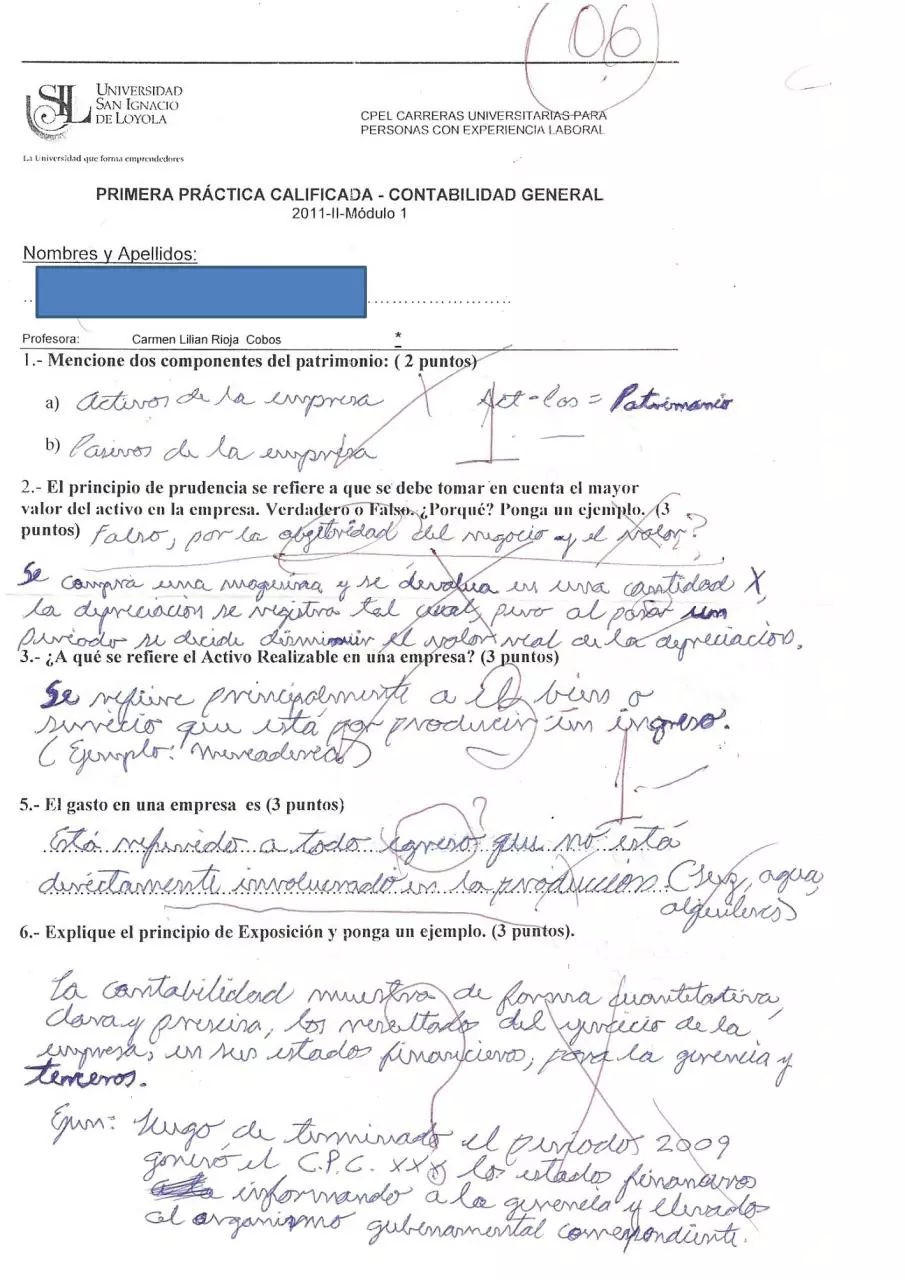 06
UNIVERSIDAD
SAN IGNACIO
DE LOYOLA
La Universidad que forma emprendedores
CPEL CARRERAS UNIVERSITARIAS PARA
PERSONAS CON EXPERIENCIA LABORAL
PRIMERA PRÁCTICA CALIFICADA - CONTABILIDAD GENERAL
2011-II-Módulo 1
Nombres y Apellidos:
Profesora: Carmen Lilian Rioja Cobos *
1.- Mencione dos componentes del patrimonio: ( 2 puntos)
a) Activos de la empresa Act - Pas = Patrimonio
b) Pasivos de la empresa
2.- El principio de prudencia se refiere a que se debe tomar en cuenta el mayor
valor del activo en la empresa. Verdadero o Falso. ¿Porqué? Ponga un ejemplo. (3
puntos) Falso, por la objetividad del negocio y el valor?
Se compra una maquina y se devalua en una cantidad X,
la depreciación se registra tal cual, pero al pasar un
período se decide disminuir el valor real de la depreciación.
3.- ¿A qué se refiere el Activo Realizable en una empresa? (3 puntos)
Se refiere principalmente a El bien o
servicio que está por producir un ingreso.
(Ejemplo: Mercadería)
5.- El gasto en una empresa es (3 puntos)
Está referido a todo egreso que no está ?
directamente involucrado en la producción (luz, agua,
alquileres)
6.- Explique el principio de Exposición y ponga un ejemplo. (3 puntos).
La contabilidad muestra de forma cuantitativa,
clara y precisa, los resultados del ejercicio de la
empresa, en sus estados financieros, para la gerencia y
terceros.
Ejm: Luego de terminado el períodos 2009
generó el C.P.C. XXX los estados financieros
informando a la gerencia y llevados
al organismo gubernamental correspondiente.